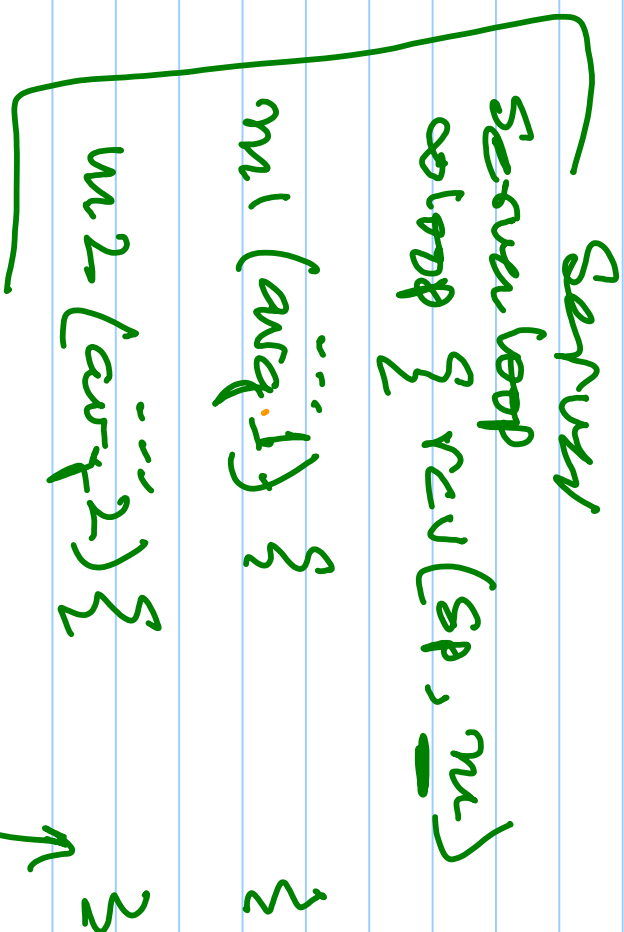 Server
Server loop
∞loop { rcv(sp, m)
m1 (arg1) { }
m2 (arg2) { }